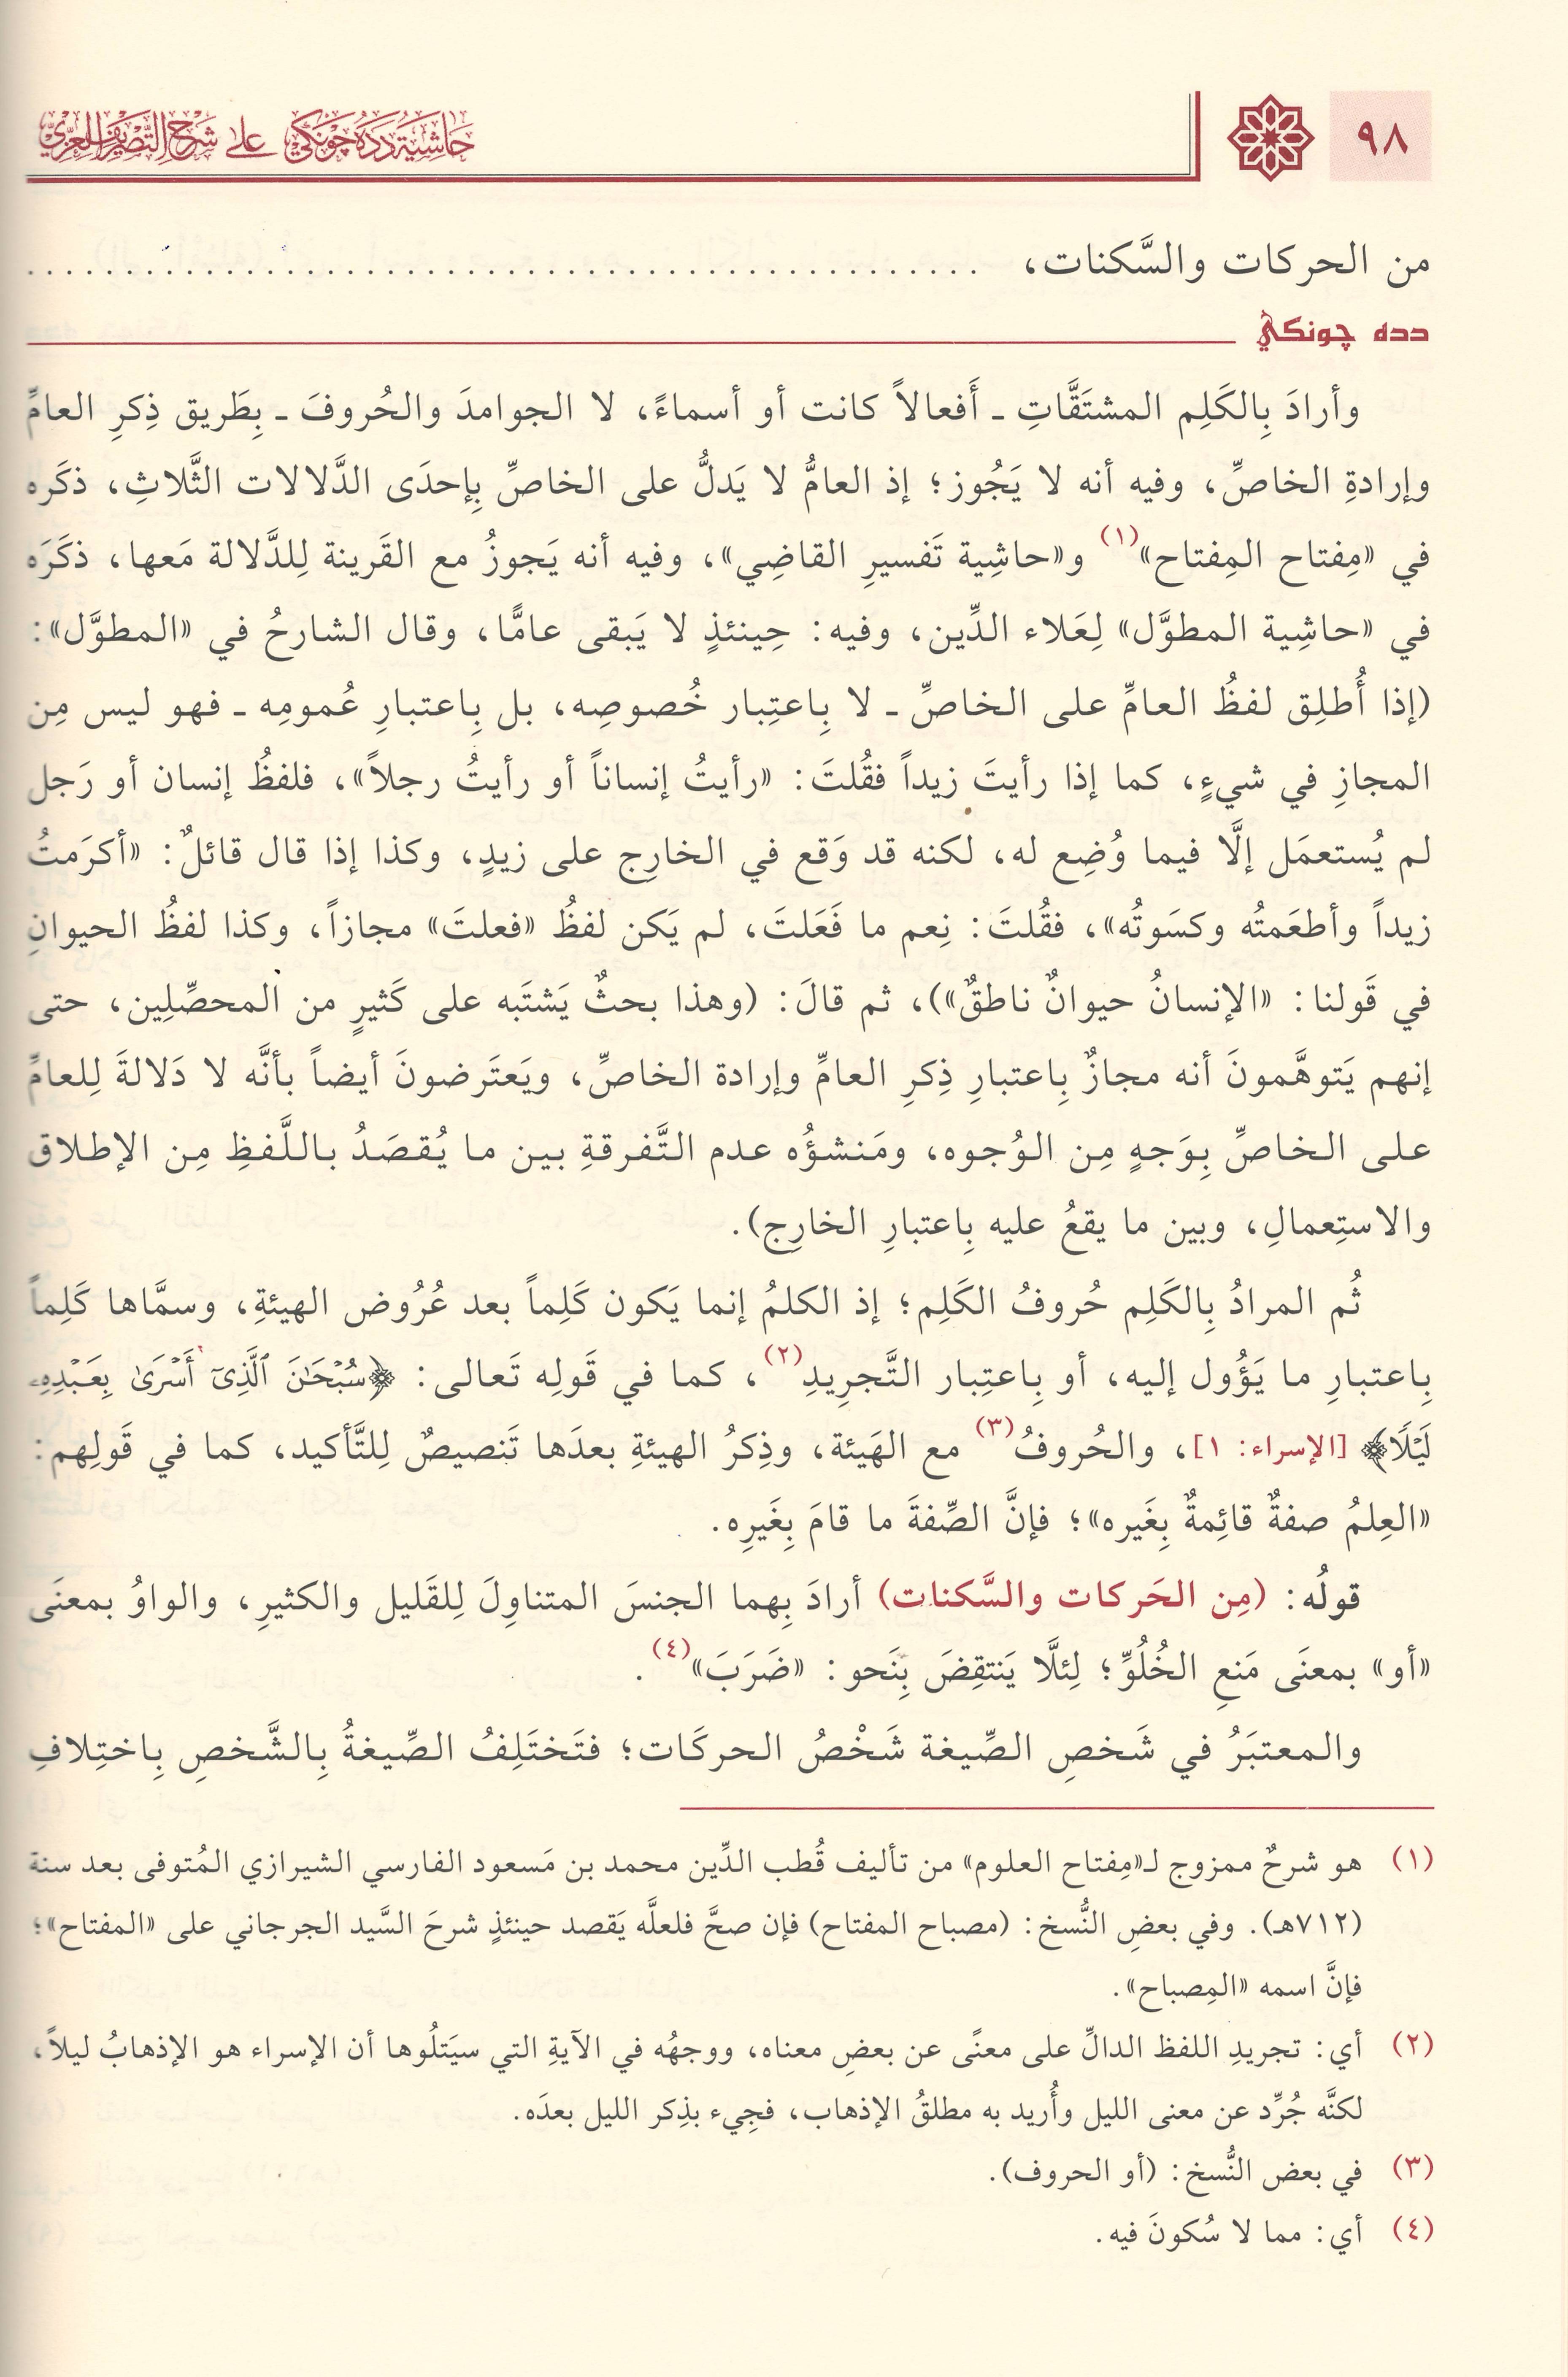 ٩٨
حَاشِيَة دَدَه جُونكي على شَرْح التَّصْرِيف العِزِّيّ
من الحركات والسَّكنات، ................................................
دده چونكي
وأرادَ بِالكَلِم المشتَقَّاتِ ـ أَفعالاً كانت أو أسماءً، لا الجوامدَ والحُروفَ ـ بِطَريق ذِكرِ العامِّ
وإرادةِ الخاصِّ، وفيه أنه لا يَجُوز؛ إذ العامُّ لا يَدلُّ على الخاصِّ بِإحدَى الدَّلالات الثَّلاثِ، ذكَره
في «مِفتاح المِفتاح»(١) و«حاشِية تَفسيرِ القاضِي»، وفيه أنه يَجوزُ مع القَرينة لِلدَّلالة مَعها، ذكَرَه
في «حاشِية المطوَّل» لِعَلاء الدِّين، وفيه: حِينئذٍ لا يَبقى عامًّا، وقال الشارحُ في «المطوَّل»:
(إذا أُطلِق لفظُ العامِّ على الخاصِّ ـ لا بِاعتِبار خُصوصِه، بل بِاعتبارِ عُمومِه ـ فهو ليس مِن
المجازِ في شيءٍ، كما إذا رأيتَ زيداً فقُلتَ: «رأيتُ إنساناً أو رأيتُ رجلاً»، فلفظُ إنسان أو رَجل
لم يُستعمَل إلَّا فيما وُضِع له، لكنه قد وَقع في الخارِج على زيدٍ، وكذا إذا قال قائلٌ: «أكرَمتُ
زيداً وأطعَمتُه وكسَوتُه»، فقُلتَ: نِعم ما فَعَلتَ، لم يَكن لفظُ «فعلتَ» مجازاً، وكذا لفظُ الحيوانِ
في قَولنا: «الإنسانُ حيوانٌ ناطقٌ»)، ثم قالَ: (وهذا بحثٌ يَشتَبه على كَثيرٍ من المحصِّلِين، حتى
إنهم يَتوهَّمونَ أنه مجازٌ بِاعتبارِ ذِكرِ العامِّ وإرادة الخاصِّ، ويَعتَرضونَ أيضاً بأنَّه لا دَلالةَ لِلعامِّ
على الخاصِّ بِوَجهٍ مِن الوُجوه، ومَنشؤُه عدم التَّفرقةِ بين ما يُقصَدُ باللَّفظِ مِن الإطلاق
والاستِعمالِ، وبين ما يقعُ عليه بِاعتبارِ الخارِج).
ثُم المرادُ بِالكَلِم حُروفُ الكَلِم؛ إذ الكلمُ إنما يَكون كَلِماً بعد عُرُوض الهيئةِ، وسمَّاها كَلِماً
بِاعتبارِ ما يَؤُول إليه، أو بِاعتِبار التَّجرِيدِ(٢)، كما في قَولِه تَعالى: ﴿سُبْحَٰنَ ٱلَّذِىٓ أَسْرَىٰ بِعَبْدِهِۦ
لَيْلًا﴾ [الإسراء: ١]، والحُروفُ(٣) مع الهَيئة، وذِكرُ الهيئةِ بعدَها تَنصيصٌ لِلتَّأكيد، كما في قَولِهم:
«العِلمُ صفةٌ قائِمةٌ بِغَيره»؛ فإنَّ الصِّفةَ ما قامَ بِغَيرِه.
قولُه: (مِن الحَركات والسَّكنات) أرادَ بِهما الجنسَ المتناوِلَ لِلقَليل والكثيرِ، والواوُ بمعنَى
«أو» بمعنَى مَنعِ الخُلُوِّ؛ لِئلَّا يَنتقِضَ بِنَحو: «ضَرَبَ»(٤).
والمعتبَرُ في شَخصِ الصِّيغة شَخْصُ الحركَات؛ فتَختَلِفُ الصِّيغةُ بِالشَّخصِ بِاختِلافِ
(١) هو شرحٌ ممزوج لـ«مِفتاح العلوم» من تأليف قُطب الدِّين محمد بن مَسعود الفارسي الشيرازي المُتوفى بعد سنة
(٧١٢هـ). وفي بعضِ النُّسخ: (مصباح المفتاح) فإن صحَّ فلعلَّه يَقصد حينئذٍ شرحَ السَّيد الجرجاني على «المفتاح»؛
فإنَّ اسمه «المِصباح».
(٢) أي: تجريدِ اللفظ الدالِّ على معنًى عن بعضِ معناه، ووجهُه في الآيةِ التي سيَتلُوها أن الإسراء هو الإذهابُ ليلاً،
لكنَّه جُرِّد عن معنى الليل وأُريد به مطلقُ الإذهاب، فجِيء بذِكر الليل بعدَه.
(٣) في بعض النُّسخ: (أو الحروف).
(٤) أي: مما لا سُكونَ فيه.